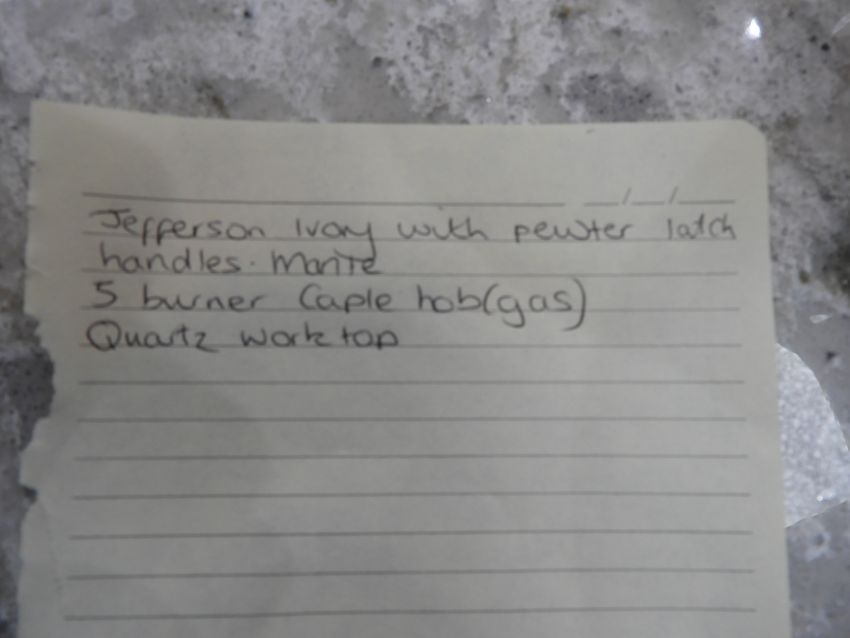 Jefferson Ivory with pewter latch
handles.
5 burner Caple hob(gas)
Quartz worktop